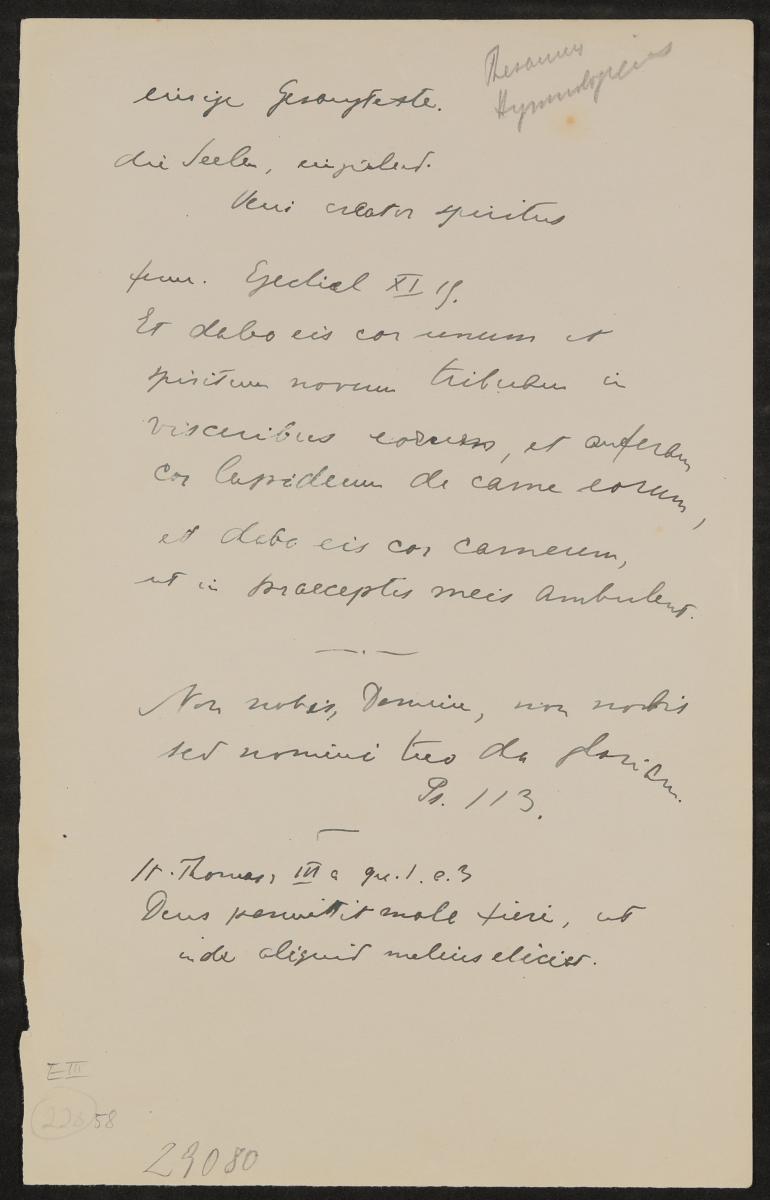 Thesaurus
Hymnologicus
einige Gesangtexte.
die Seelen,
Veni creator spiritus
Ezechiel XI 19.
Et dabo eis cor unum et
spiritum novum tribuam in
visceribus eorum, et auferam
cor lapideum de carne eorum,
et dabo eis cor carneum,
ut in praeceptis meis ambulent.
Non nobis, Domine, non nobis
sed nomini tuo da gloriam.
Ps. 113.
St. Thomas, III a qu. 1. a. 3
Deus permittit mala fieri, ut
inde aliquid melius eliciat.
E III
226 58
29080